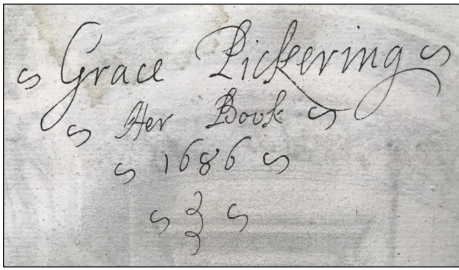 Grace Pickering
Her Book
1686